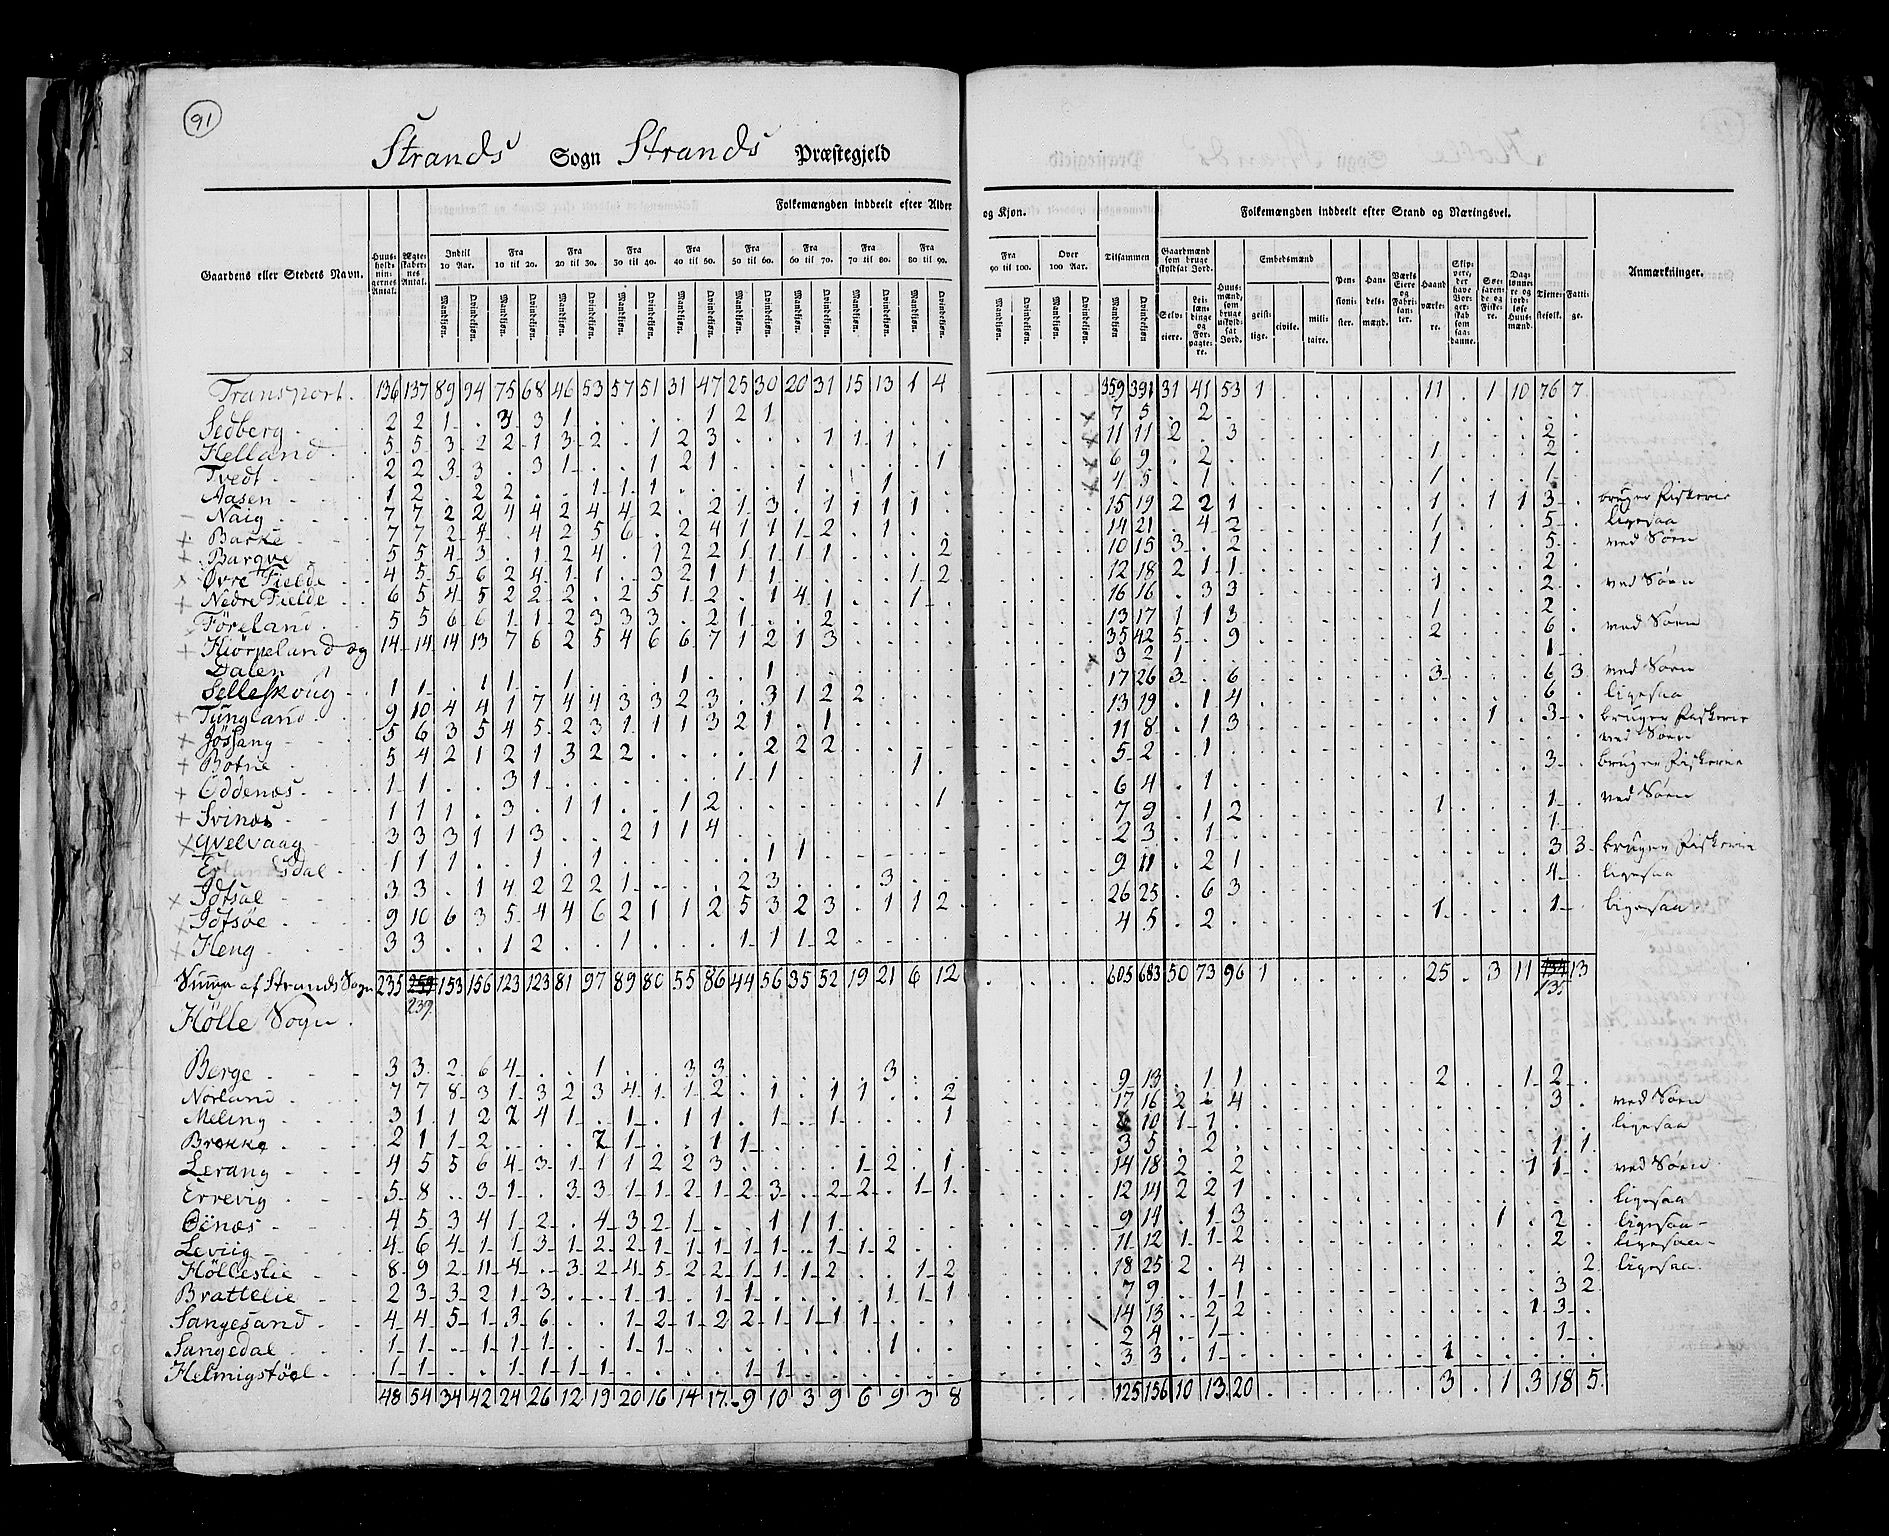 91
Strands Sogn Strands Præstegjeld
Gaardens eller Stedets Navn.
Huus-holdnin-gernes Antal.
Ægte-skaber-nes Antal.
Folkemængden inddeelt efter Alder og Kjøn.
Indtil 10 Aar. Fra 10 til 20. Fra 20 til 30. Fra 30 til 40. Fra 40 til 50. Fra 50 til 60. Fra 60 til 70. Fra 70 til 80. Fra 80 til 90. Fra 90 til 100. Over 100 Aar. Tilsammen
Mandkjøn. Qvindekjøn.
Folkemængden inddeelt efter Stand og Næringsvei.
Gaardmænd som bruge skyldsat Jord.
Selv-eiere.
Lei-læn-dinge og For-pagte-re.
Huus-mænd, som bruge uskyld-sat Jord.
Embedsmænd
geist-lige. civile. mili-taire.
Pen-sioni-ster.
Han-dels-mænd.
Værks Eiere og Fabri-kan-ter.
Haand værke-re.
Søe-faren-de og Fiske-re.
Dag-lønne-re og jord-løse Huus-mænd.
Tjene-stefolk.
Fatti-ge.
Anmærkninger.
Transport. 136 137 89 94 75 68 46 53 57 51 31 47 25 30 20 31 15 13 1 4 359 391 31 41 53 1 11 1 10 76 7
Sedberg 2 2 1 3 3 1 1 2 1 7 5 2
Helland 5 5 3 2 2 1 3 2 1 2 3 1 1 1 11 11 2 3 2
Tvedt 2 2 3 3 3 1 1 2 1 1 6 9 2 1 2
Aasen 1 2 2 2 1 1 1 1 1 4 5 1 1 1
Naig 7 7 2 2 4 4 2 4 4 2 2 1 3 1 1 1 1 15 19 2 2 1 1 1 1 3 bruger Fiskerie
Barke 7 7 2 4 4 2 5 6 2 4 1 1 1 2 1 14 21 4 2 1 5 ligesaa
Bargve 5 5 4 3 1 2 4 1 2 2 1 1 1 1 2 10 15 3 2 1 5 ved Søen
Øvre Fielde 4 5 5 6 2 4 1 1 3 2 1 1 1 1 2 12 18 2 1 1 2
Nedre Fielde 6 5 4 5 2 2 2 2 5 1 2 1 4 1 1 16 16 3 3 1 2 ved Søen
Föreland 5 5 6 6 1 1 2 3 3 3 2 1 2 13 17 1 1 3 1 2
Hiörpeland og 14 14 14 13 7 6 2 5 4 6 6 7 1 2 1 3 35 42 5 9 2 6 ved Søen
Dalen
Selleskoug 1 1 1 1 1 1 1 3 2 1 1
Tungland 9 10 4 4 1 7 4 4 3 3 2 3 3 1 2 2 17 26 3 6 3 6 3 ved Søen
Jössang 5 6 3 5 4 5 2 3 1 1 1 3 2 1 1 13 19 1 4 6 ligesaa
Botne 5 4 2 1 2 1 3 2 2 2 2 2 11 8 1 3 1 3 bruger Fiskerie
Oddenæs 1 1 3 1 1 1 1 5 2 1 ved Søen
Svines 1 1 1 3 1 1 1 2 1 6 4 1 3 bruger Fiskerie
Qvelvaag 3 3 3 1 1 3 2 1 1 4 7 9 1 2 1 1 ved Søen
1 1 1 1 1 1 1 2 3 1 1
Idtsal 3 3 1 4 2 2 2 1 2 3 3 9 11 2 1 3 3 bruger Fiskerie
Idtsøe 9 10 6 3 5 4 4 6 2 1 1 2 5 3 2 3 1 1 2 26 25 6 3 4 ligesaa
Heng 3 3 1 2 1 1 1 1 2 4 5 2 1 1 ligesaa
Summe af Strands Sogn 235 239 153 156 123 123 81 97 89 80 55 86 44 56 35 52 19 21 6 12 605 683 50 73 96 1 25 3 11 135 13
Hölle Sogn.
Berge 3 3 2 6 4 1 3 3 3 9 13 1 1 2 1 2
Norland 7 7 8 3 1 3 2 3 4 1 1 2 1 1 1 2 17 16 2 4 3 ved Søen
Meling 3 1 1 2 7 4 1 1 1 1 1 1 1 8 10 1 1 ligesaa
Brekke 2 1 1 2 1 1 1 3 5 2 1 1
Lerang 4 5 5 6 4 3 1 1 1 2 2 3 1 2 1 14 18 2 2 1 1 ved Søen
Errevig 5 8 3 1 3 3 1 1 2 1 2 3 2 2 1 1 12 14 2 2 1 ligesaa
Öinæs 4 5 3 4 1 2 4 3 2 1 1 1 1 9 14 1 3 1 2 ligesaa
Leviig 4 6 4 1 1 3 1 2 2 1 1 1 1 1 1 1 2 11 12 1 1 2 2 ligesaa
Hölleslie 8 9 2 11 4 3 2 4 5 2 2 1 1 1 2 1 2 18 25 2 4 2 ligesaa
Brattelie 2 3 3 2 1 3 1 1 1 1 1 1 1 7 9 1 1 3 2
Sangesand 4 4 5 1 3 6 1 2 1 2 2 1 1 1 1 14 13 2 2 1 3
Sangedal 1 1 1 1 1 1 1 1 2 4 1 1
Helmigstøel 1 1 1 1 1 1 1 1 3 3 1 1
48 54 34 42 24 26 12 19 20 16 14 17 9 10 3 9 6 9 3 8 125 156 10 13 20 3 1 3 18 5